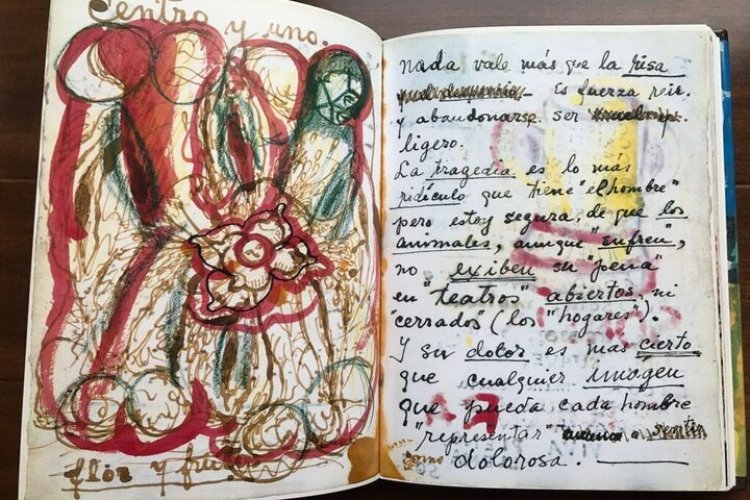 Centro y uno.
flor y fruto
nada vale más que la risa
Es fuerza reir
y abandonarse. ser
ligero.
La tragedia es lo más
ridículo que tiene "el hombre"
pero estoy segura, de que los
animales, aunque "sufren",
no exiben su "pena"
en "teatros" abiertos, ni
"cerrados" (los "hogares").
Y su dolor es mas cierto
que cualquier imágen
que pueda cada hombre
"representar" sentir
como dolorosa.